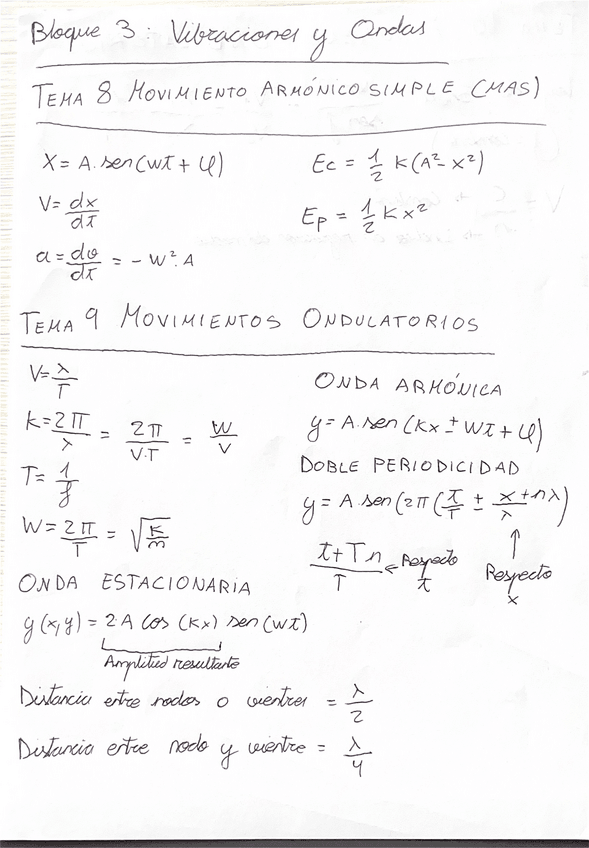 Bloque 3: Vibraciones y Ondas
TEMA 8 MOVIMIENTO ARMÓNICO SIMPLE (MAS)
X = A. sen(wt + φ)
V = dx/dt
a = dv/dt = - W². A
Ec = 1/2 K(A² - x²)
Ep = 1/2 K x²
TEMA 9 MOVIMIENTOS ONDULATORIOS
V = λ/T
K = 2π/λ = 2π/V.T = W/V
T = 1/f
W = 2π/T = √(K/m)
ONDA ARMÓNICA
y = A. sen (Kx ± Wt + φ)
DOBLE PERIODICIDAD
y = A. sen (2π (t/T ± x + nλ/λ)
t + Tn/T ← Respecto t
↑ Respecto x
ONDA ESTACIONARIA
y (x,y) = 2.A cos (Kx) sen (wt)
Amplitud resultante
Distancia entre nodos o vientres = λ/2
Distancia entre nodo y vientre = λ/4